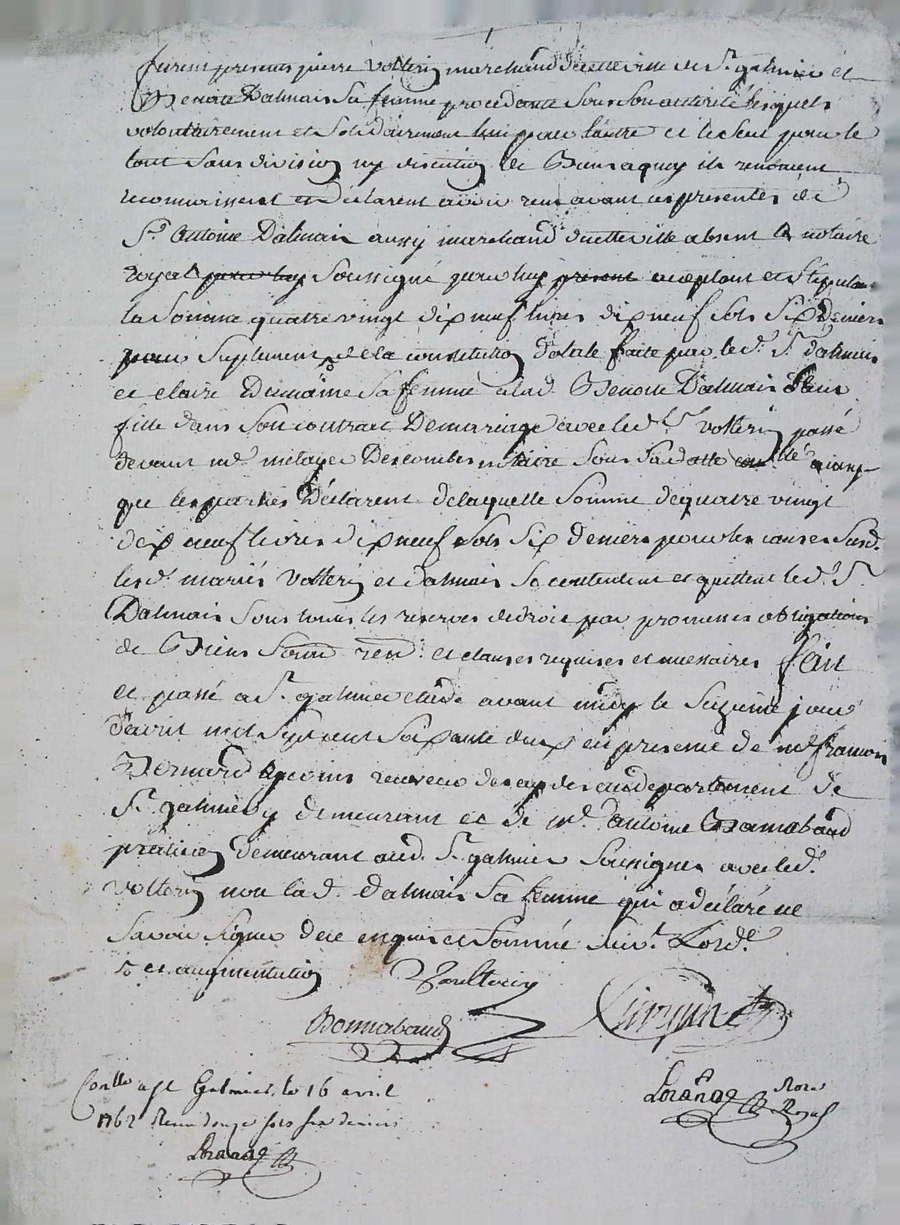 furent presents pierre Volterin marchand decette ville de St. galmier et
Benoite Dalmais Sa femme procedante Sous Son autorité lesquels
volontairement et Solidairement l'un pour l'autre et le Seul pour le
tout Sans division ny discution de Biens aquoy ils renoncent
reconnoissent et Déclarent avoir reçu avant ces presentes de
Sr. Antoine Dalmais aussy marchand decette ville absent le notaire
royal pour luy Soussigné pour luy present aceptant et Stipulant
la Somme quatre vingt dix neuf livres dix neuf Sols Six Deniers
pour Suplement de la constitution dotale faite par led. Sr. dalmais
et claire Dumaine Sa femme a lad. Benoite Dalmais leur
fille dans Son contrat Demariage avec led. Sr. Volterin passé
devant me. Descombes notaire Sous Sa datte controllé ainsy
que les parties Déclarent delaquelle Somme dequatre vingt
dix neuf livres dix neuf Sols Six Deniers pour les causes Susd.
lesd. mariés Volterin et dalmais Se contentent et quittent led. Sr.
Dalmais Sous toutes les reserves dedroit par promesses obligations
de Biens Soum. ren. et clauses requises et necessaires fait
et passé a St. galmier etude avant midy le Seizieme jour
d'avril mil Sept cent Soixante deux en presence de me. francois
Bernard receveur des aud. departement de
St. galmier y demeurant et de me. antoine Bonnabaud
praticien Demeurant aud. St. galmier Soussignés avec led.
Volterin non lad. Dalmais Sa femme qui a déclaré ne
Savoir Signer de ce enquise et Sommée Suivt. Lordce.
et augmentation Voulterin
Bonnabaud
Conllé a St Galmier le 16 avril
1762 Reçu douze sols six deniers
Lorange
Lorange Nore
Royal